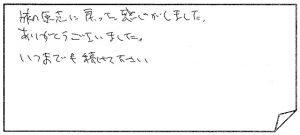 旅の原点に戻った感じがしました。
ありがとうございました。
いつまでも続けて下さい